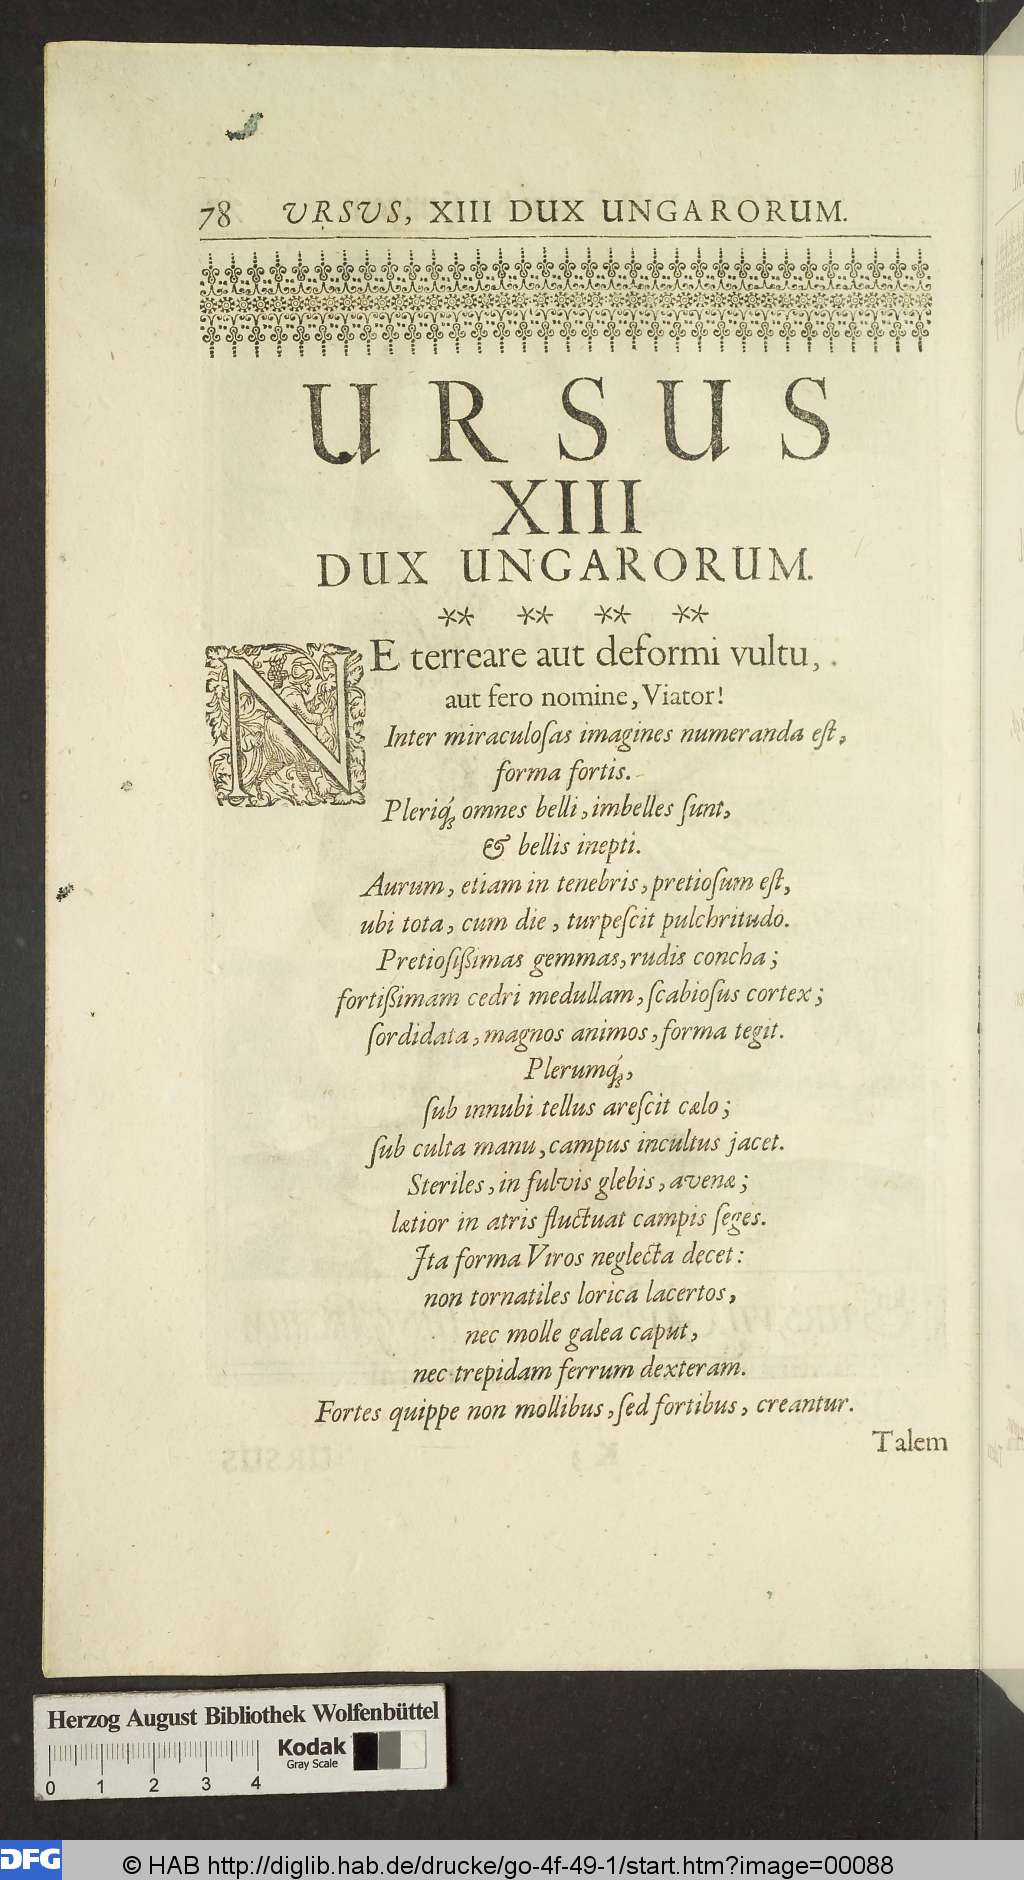 78 URSUS, XIII DUX UNGARORUM.
URSUS
XIII
DUX UNGARORUM.
** ** ** **
NE terreare aut deformi vultu,
aut fero nomine, Viator!
Inter miraculoſas imagines numeranda eſt,
forma fortis.
Pleriq́; omnes belli, imbelles ſunt,
& bellis inepti.
Aurum, etiam in tenebris, pretioſum eſt,
ubi tota, cum die, turpeſcit pulchritudo.
Pretioſißimas gemmas, rudis concha;
fortißimam cedri medullam, ſcabioſus cortex;
ſordidata, magnos animos, forma tegit.
Plerumq́;,
ſub innubi tellus areſcit cælo;
ſub culta manu, campus incultus jacet.
Steriles, in fulvis glebis, avenæ;
lætior in atris fluctuat campis ſeges.
Ita forma Viros neglecta decet:
non tornatiles lorica lacertos,
nec molle galea caput,
nec trepidam ferrum dexteram.
Fortes quippe non mollibus, ſed fortibus, creantur.
Talem
Herzog August Bibliothek Wolfenbüttel
Kodak
Gray Scale
0 1 2 3 4
DFG
© HAB http://diglib.hab.de/drucke/go-4f-49-1/start.htm?image=00088